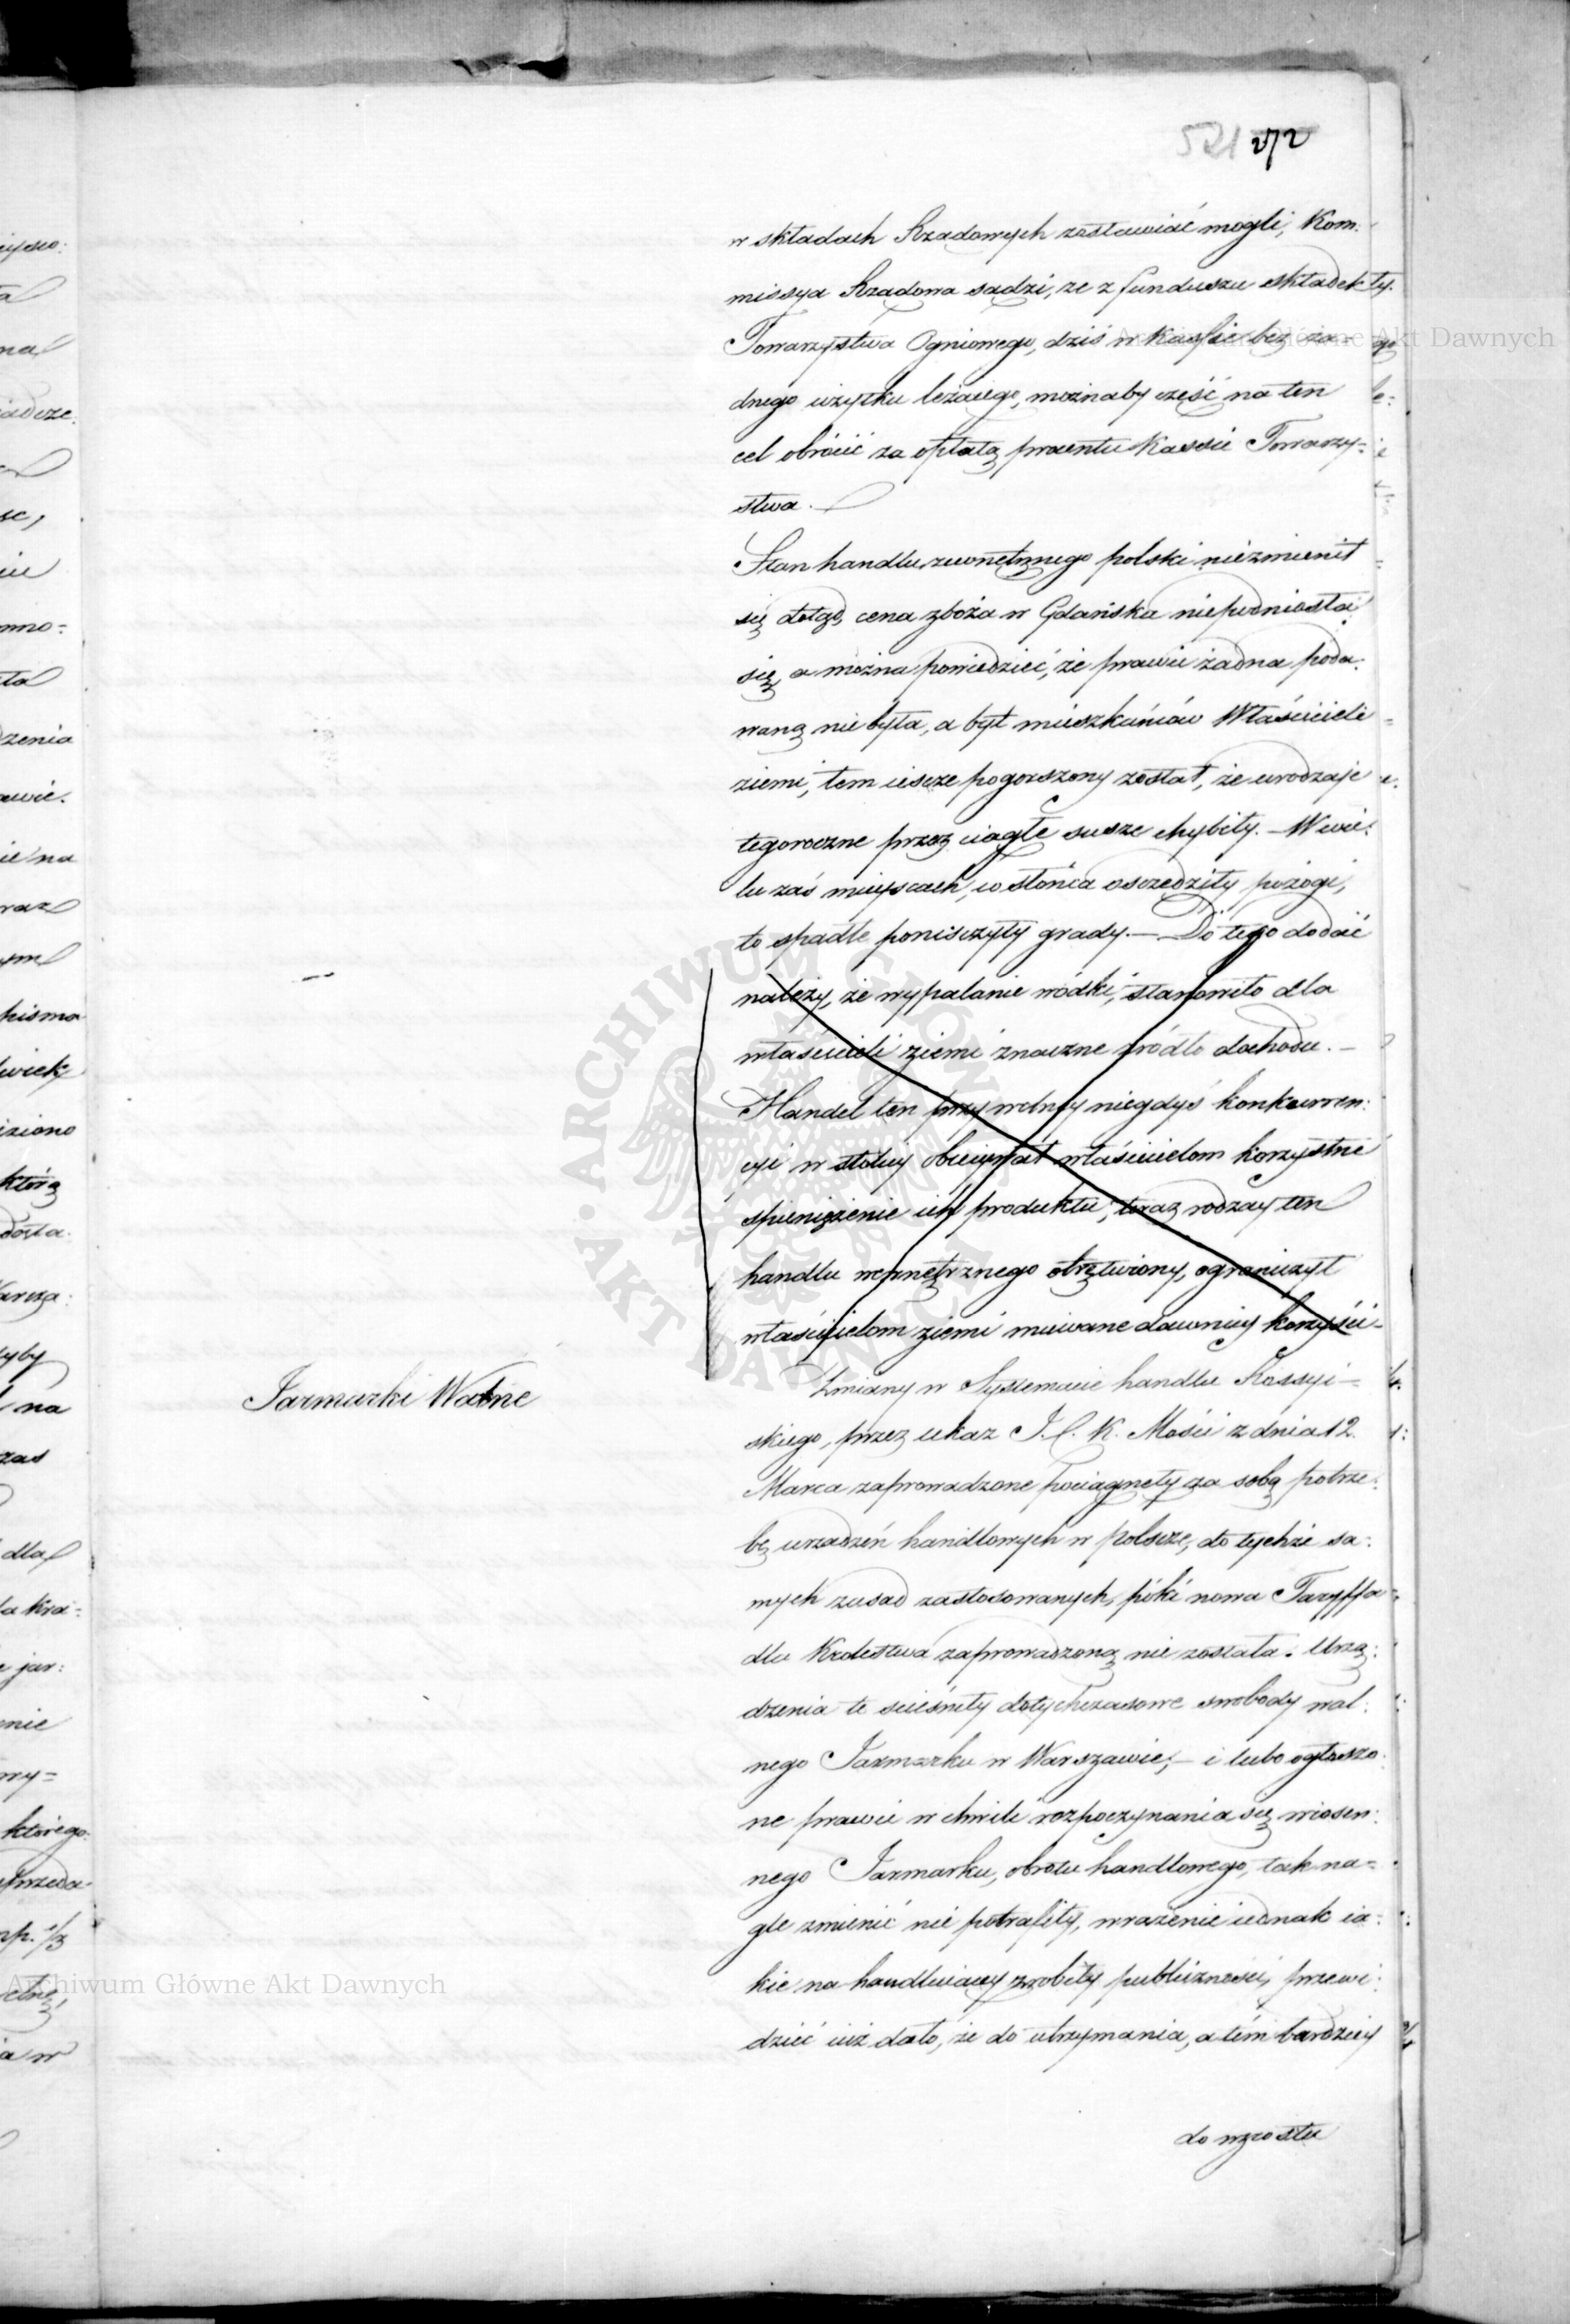 521 272
w składach Rządowych zostawiać mogli, Kom:
missya Rządowa sądzi, że z funduszu składek
Towarzystwa Ogniowego, dziś w Kassie bez ża-
dnego użytku leżącego, możnaby część na ten
cel obrócić za opłatą procentu Kassie Towarzy-
stwa.
Stan handlu zewnętrznego polski niezmienił
się dotąd, cena zboża w Gdańsku niepodniosła
się, a można powiedzieć, że prawie żadna poda:
waną nie była, a byt mieszkańców Właścicieli
ziemi, tem ieszcze pogorszony został, że urodzaje
tegoroczne przez ciągłe susze chybiły. – W wie:
lu zaś mieyscach, co słońca oszczędziły pożogi,
to spadłe poniszczyły grady. – Do tego dodać
należy, że wypalanie wódki, stanowiło dla
właścicieli ziemi znaczne źródło dochodu. –
Handel ten przy wolney niegdyś konkurren:
cyi w stolicy obiecywał właścicielom korzystne
spieniężenie ich produktu, teraz rodzay ten
handlu wewnętrznego ograniczył
właścicielom ziemi miewane dawniey korzyści –
Jarmarki Walne
Zmiany w Systemacie handlu Rossyi-
skiego, przez ukaz J. C. K. Mości z dnia 12.
Marca zaprowadzone pociągnęły za sobą potrze:
bę urządzeń handlowych w polszcze, do tychże sa:
mych zasad zastosowanych, póki nowa Taryffa
dla Krolestwa zaprowadzoną nie została. Urzą:
dzenia te scieśniły dotychczasowe swobody wal:
nego Jarmarku w Warszawie, – i lubo ogłoszo:
ne prawie w chwili rozpoczynania się wiosen:
nego Jarmarku, obrotu handlowego, tak na=
gle zmienić nie potrafiły, wrażenie iednak ia:
kie na handluiącey zrobiły publiczności, przewi:
dzieć iuż dało, że do utrzymania, a tém bardziey
do wzrostu
Archiwum Główne Akt Dawnych
Archiwum Główne Akt Dawnych
ARCHIWUM GŁÓWNE AKT DAWNYCH